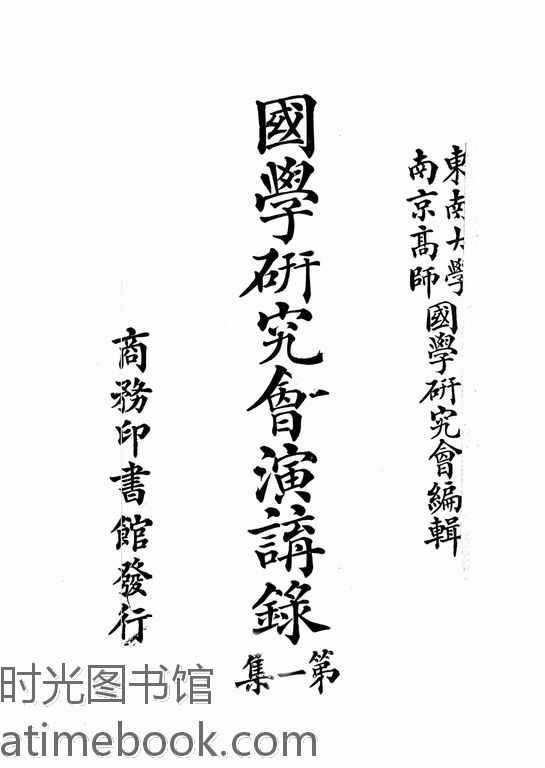 東南大學
南京高師
國學研究會編輯
國學研究會演講錄
第一集
商務印書館發行
时光图书馆
atimebook.com